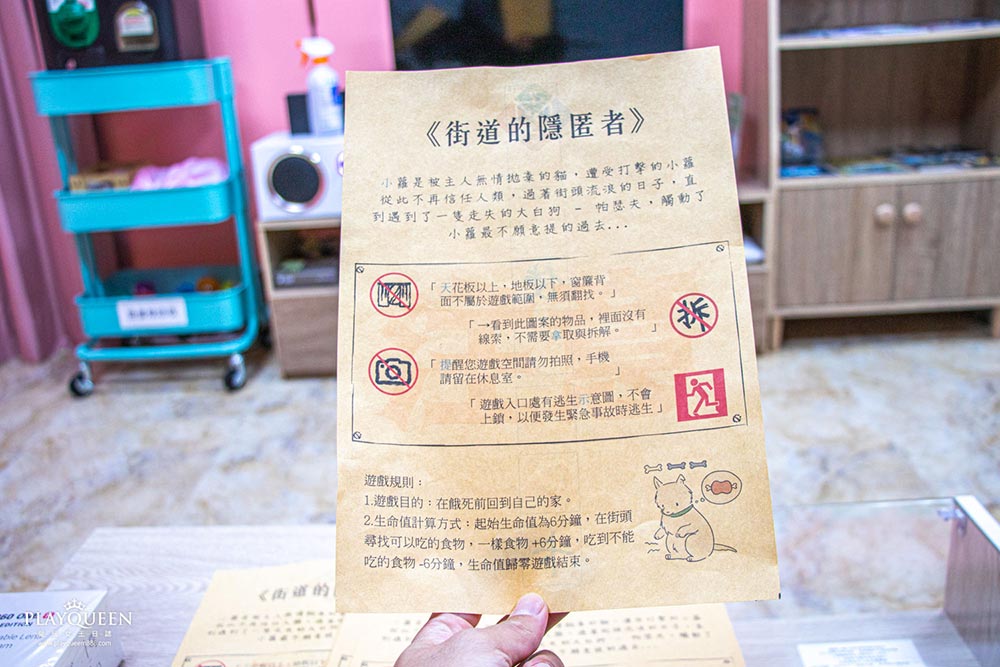 《街道的隱匿者》
小蘿是被主人無情拋棄的貓，遭受打擊的小蘿
從此不再信任人類，過著街頭流浪的日子，直
到遇到了一隻走失的大白狗 – 帕瑟夫，觸動了
小蘿最不願意提的過去...
「天花板以上，地板以下，窗簾背
面不屬於遊戲範圍，無須翻找。」
「→看到此圖案的物品，裡面沒有
線索，不需要拿取與拆解。 」
拆
「提醒您遊戲空間請勿拍照，手機
請留在休息室。 」
「遊戲入口處有逃生示意圖，不會
上鎖，以便發生緊急事故時逃生」
遊戲規則：
1.遊戲目的：在餓死前回到自己的家。
2.生命值計算方式：起始生命值為6分鐘，在街頭
尋找可以吃的食物，一樣食物 +6分鐘，吃到不能
吃的食物 -6分鐘，生命值歸零遊戲結束。
《街道的
PLAYQUEEN